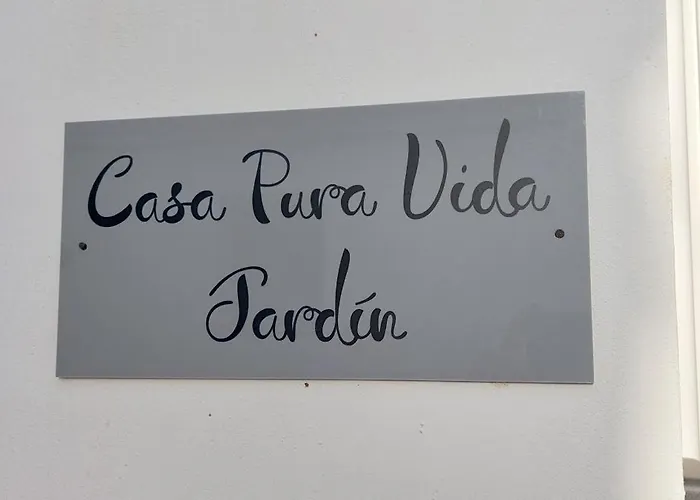 Casa Pura Vida
Jardín